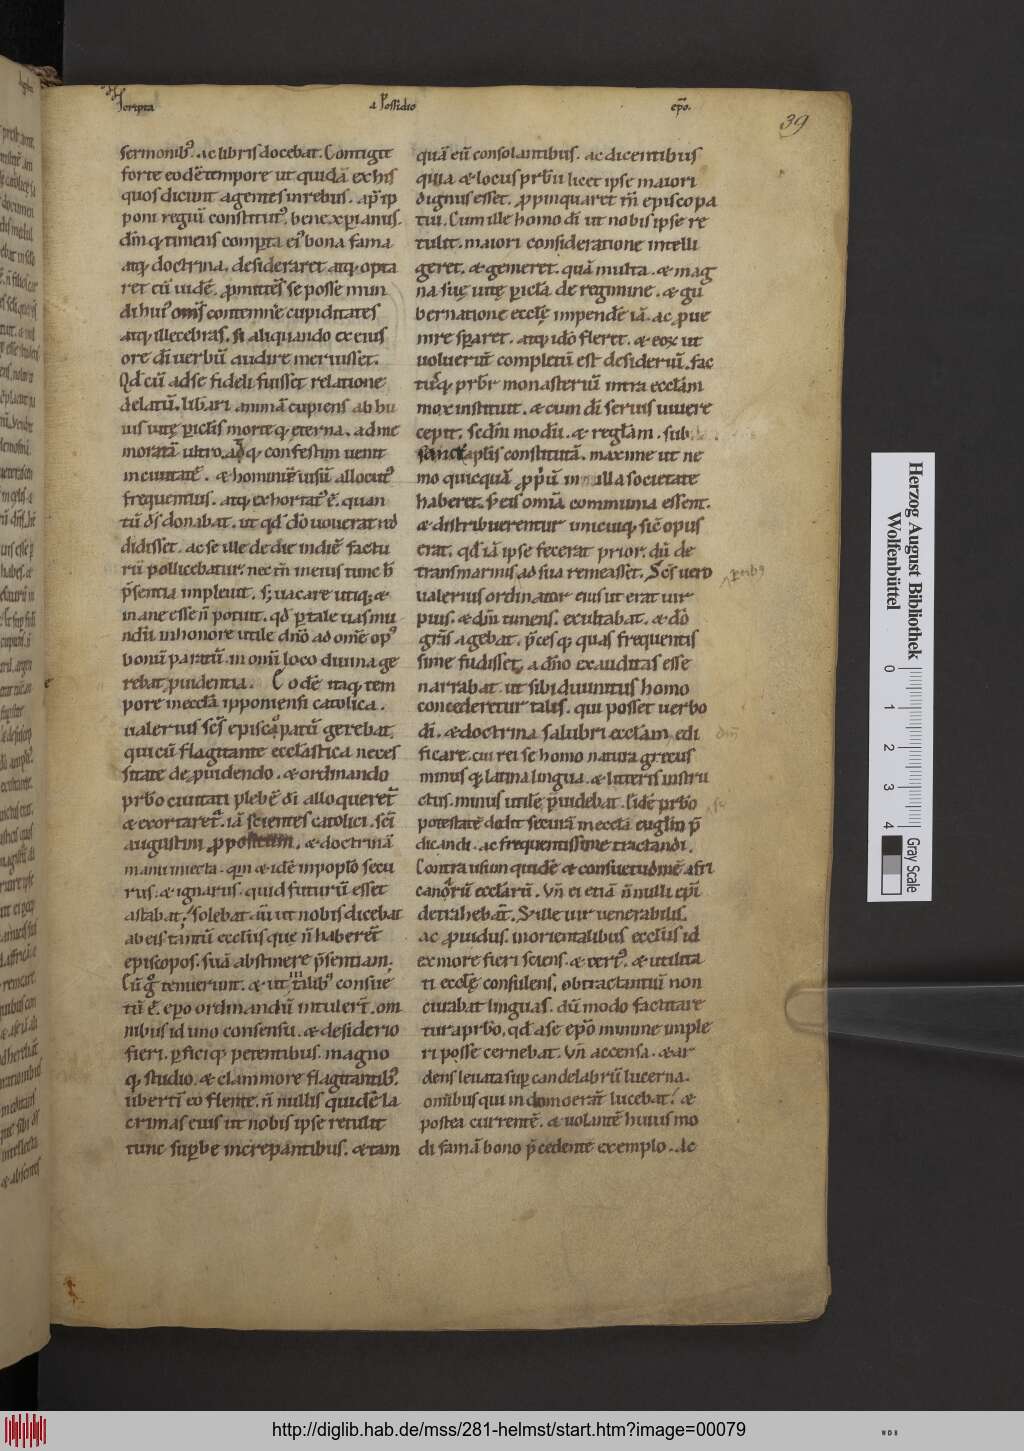 Scripta a Possidio ep̄o.
39
sermonib; . ac libris docebat. Contigit
forte eodē tempore ut quidā ex his
quos dicunt agentes in rebus . apđ ip
poni regiū constitut᷒, bene xp̄ianus.
dm̄ q; timens comꝑta ei᷒ bona fama
atq; doctrina, desideraret atq; opta
ret eū uidē. ꝓmittēs se posse mun
di hui᷒ om̄s contemnē cupiditates
atq; illecebras. si aliquando ex eius
ore dī uerbū audire meruisset.
Qđ cū ad se fideli fuisset relatione
delatū. lib̄ari animā cupiens ab hu
uis uitę ꝑiclis morte q; ęterna. ad me
moratā ultro adq; confestim uenit
in ciuitatē. & hominē uisū allocut᷒
frequentius. atq; exhortat᷒ ē. quan
tū d̄s donabat. ut qđ dō uouerat rđ
didisset. ac se ille de die in diē factu
rū pollicebatur. nec tn̄ in eius tunc h̄
p̄sentia impleuit. s; uacare utiq; &
inane esse n̄ potuit. qđ ꝑ tale uas mu
ndū in honore utile dn̄o ad om̄e op᷒
bonū paratū. in om̄i loco diuina ge
rebat ꝓuidentia. Eodē itaq; tem
pore in eccla ipponiensi catolica.
ualerius sc̄s episcopatū gerebat.
qui cū flagitante ecclastica neces
sitate de ꝓuidendo. & ordinando
prb̄o ciuitati plebē dī alloqueret᷑
& exortaret᷑. iā scientes catolici. sc̄i
augustini ꝓpositum. & doctrinā
manu iniecta. qm̄ & idē in poplo secu
rus. & ignarus. quid futurū esset
astabat. Solebat aū ut nobis dicebat
ab eis tantū eccl̄iis quę n̄ haberet᷑
episcopos. suā abstinere p̄sentiam.
Cū g° tenuerunt. & ut talib; consue
tū ē. ep̄o ordinandū intuler̄t. om
nibus id uno consensu. & desiderio
fieri. ꝑfici q; petentibus. magno
q; studio & clammore flagitantib;.
ubertī eo flente. n̄ nullis quidē la
crimas eius ut nobis ipse retulit
tunc suꝑbe increpantibus. & tam
quā eū consolantibus. ac dicentibus
quia & locus prb̄ii licet ipse maiori
dignus esset. ꝓpinquaret tn̄ episcopa
tui. Cum ille homo dī ut nobis ipse re
tulit. maiori consideratione intelli
geret. & gemeret. quā multa & mag
na suę uitę ꝑicla de regimine. & gu
bernatione ecclę impendē iā. ac ꝓue
nire sꝑaret. atq; idō fleret. & eox ut
uoluer̄t completū est desideriū. fac
tusq; prb̄r monasteriū intra ecclam
mox instituit. & cum dī seruis uiuere
cepit. scdm̄ modū. & reglam. sub
sanct apl̄is constitutā. maxime ut ne
mo quicquā ꝓprū in illa societate
haberet. s; eis om̄ia communia essent.
& distribuerentur unicuiq; sic̄ opus
erat. qđ iā ipse fecerat prior. dū de
transmarinis ad sua remeasset. Sc̄s uero
ualerius ordinator eius ut erat uir
pius. & dm̄ timens. exultabat. & dō
gr̄as agebat. p̄cesq; quas frequentis
sime fudisset. a dn̄o exauditas esse
narrabat. ut sibi diuinitus homo
concederetur talis. qui posset uerbo
dī. & doctrina salubri ecclam edi
ficare. cui rei se homo natura grecus
minus q; latina lingua. & litteris instru
ctus. minus utile p̄uidebat. Eidē prb̄o
potestatē dedit secūrā in eccla euglm̄ p̄
dicandi. ac frequentissime tractandi.
Contra usum quidē & consuetudinē afri
canorū ecclarū. Vn̄ ei etiā n̄ nulli ep̄i
detrahebāt. S; ille uir uenerabilis.
ac ꝓuidus. in orientalibus eccl̄iis id
ex more fieri sciens. & cert᷒. & utilita
ti ecclę consulens. obtractantiū non
curabat linguas. dū modo factitare
tur a prb̄o, qđ a se ep̄o minime imple
ri posse cernebat. Vn̄ accensa. & ar
dens leuata suꝑ candelabrū lucerna.
om̄ibus qui in domo erāt lucebat. &
postea currentē. & uolantē huius mo
di famā bono p̄cedente exemplo. Ac
Herzog August Bibliothek
Wolfenbüttel
0 1 2 3 4
Gray Scale
http://diglib.hab.de/mss/281-helmst/start.htm?image=00079